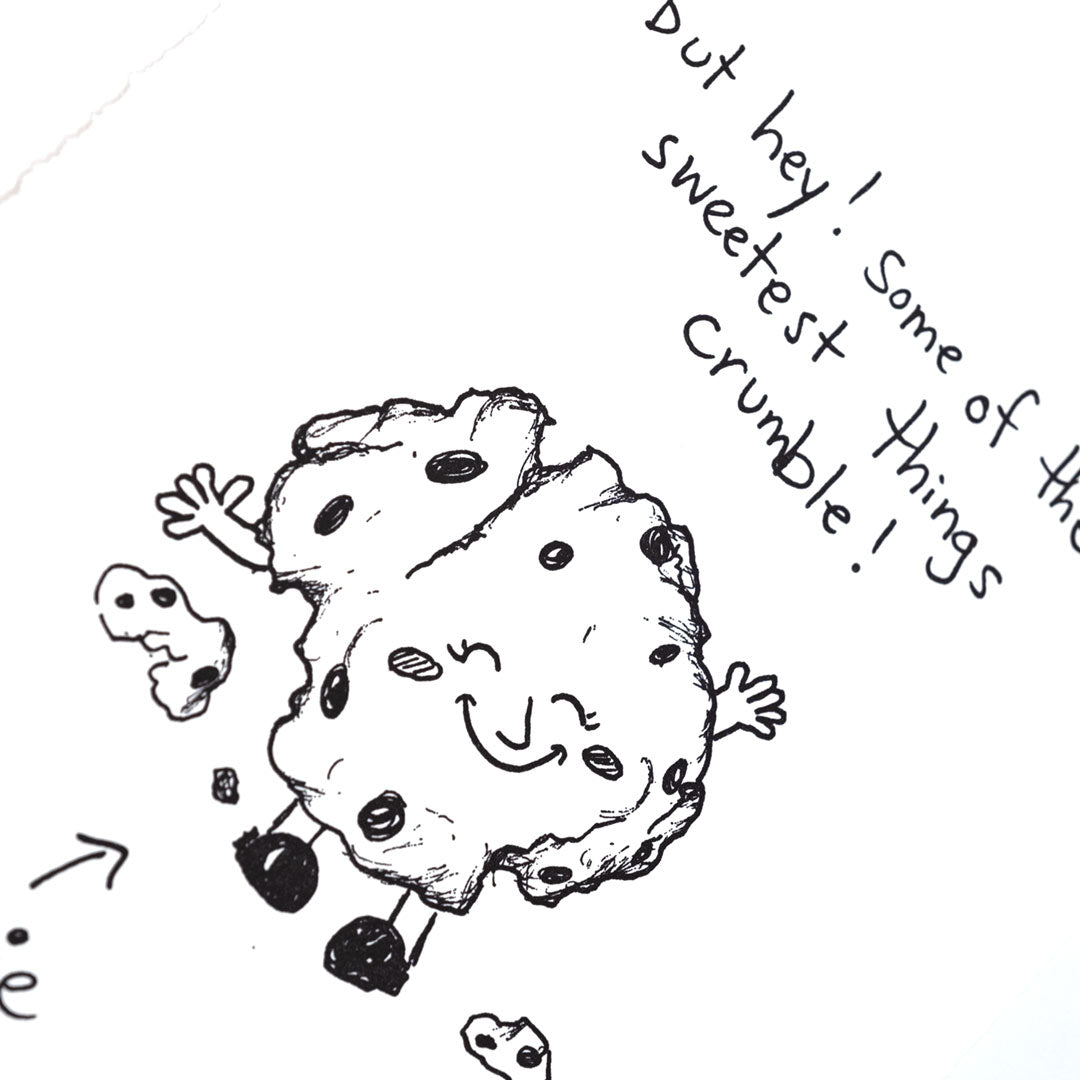 But hey! Some of the
sweetest things
crumble!
ie